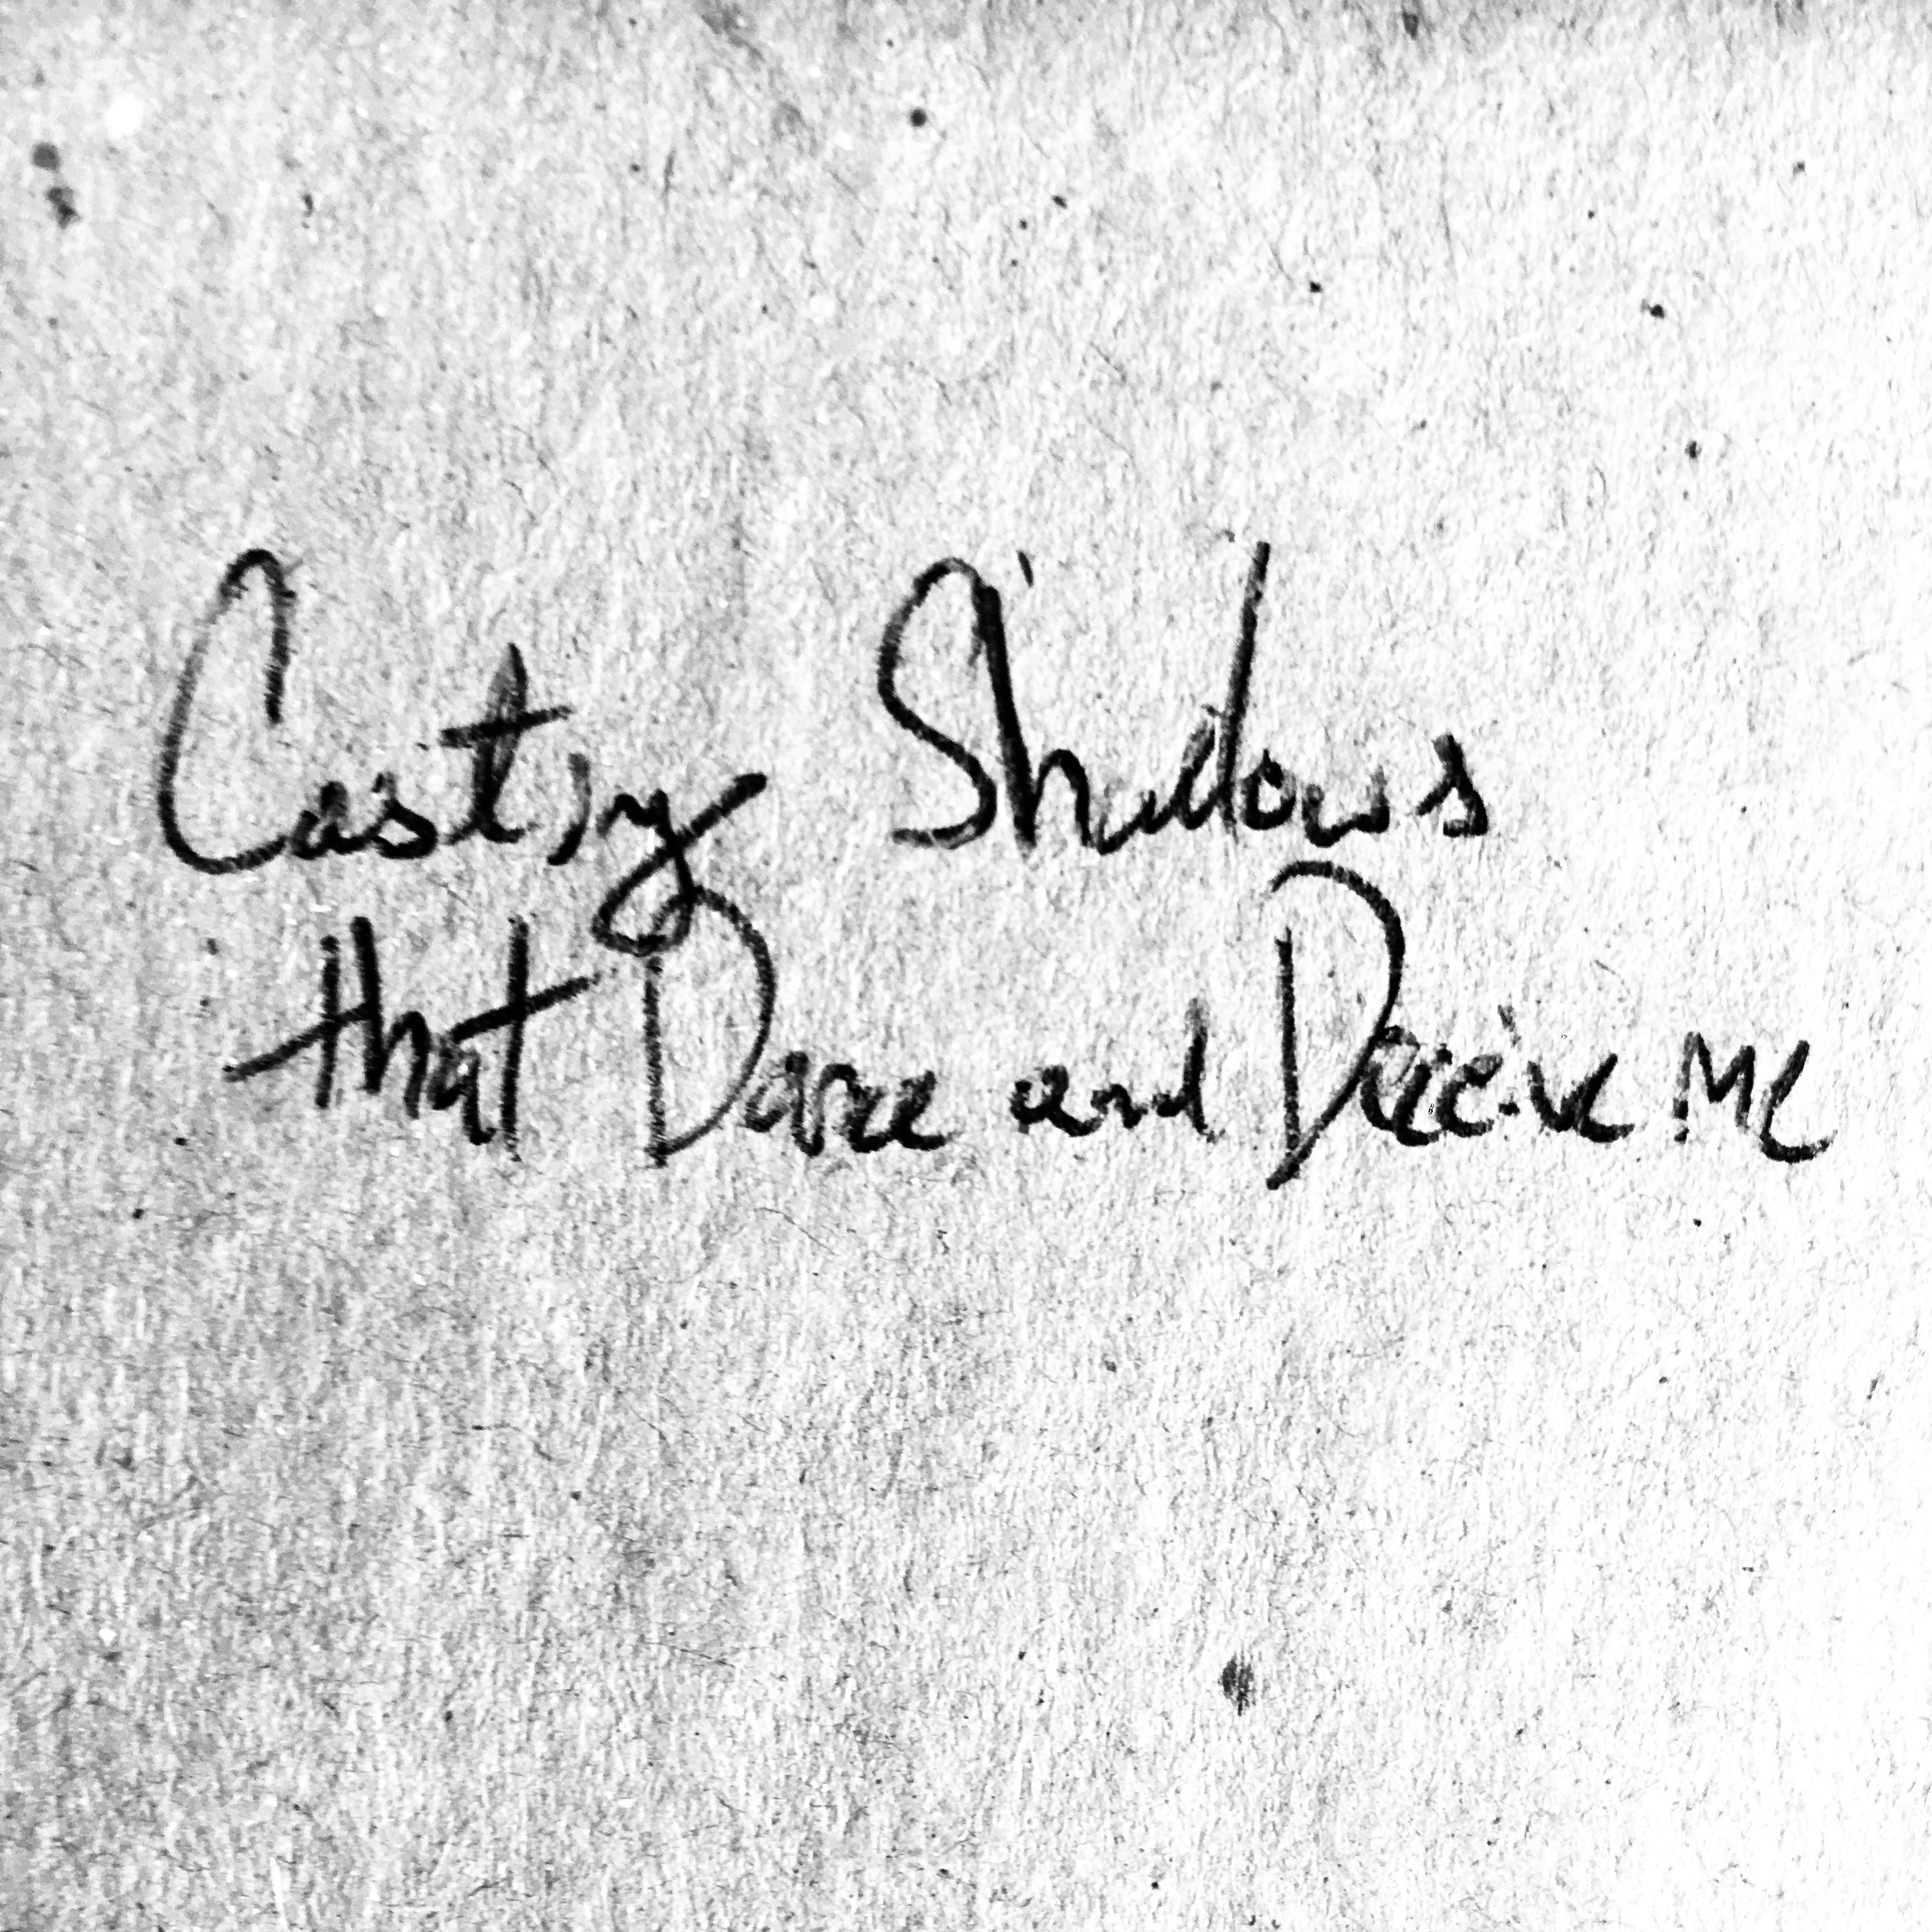 Casting Shadows
that Dance and Deceive Me